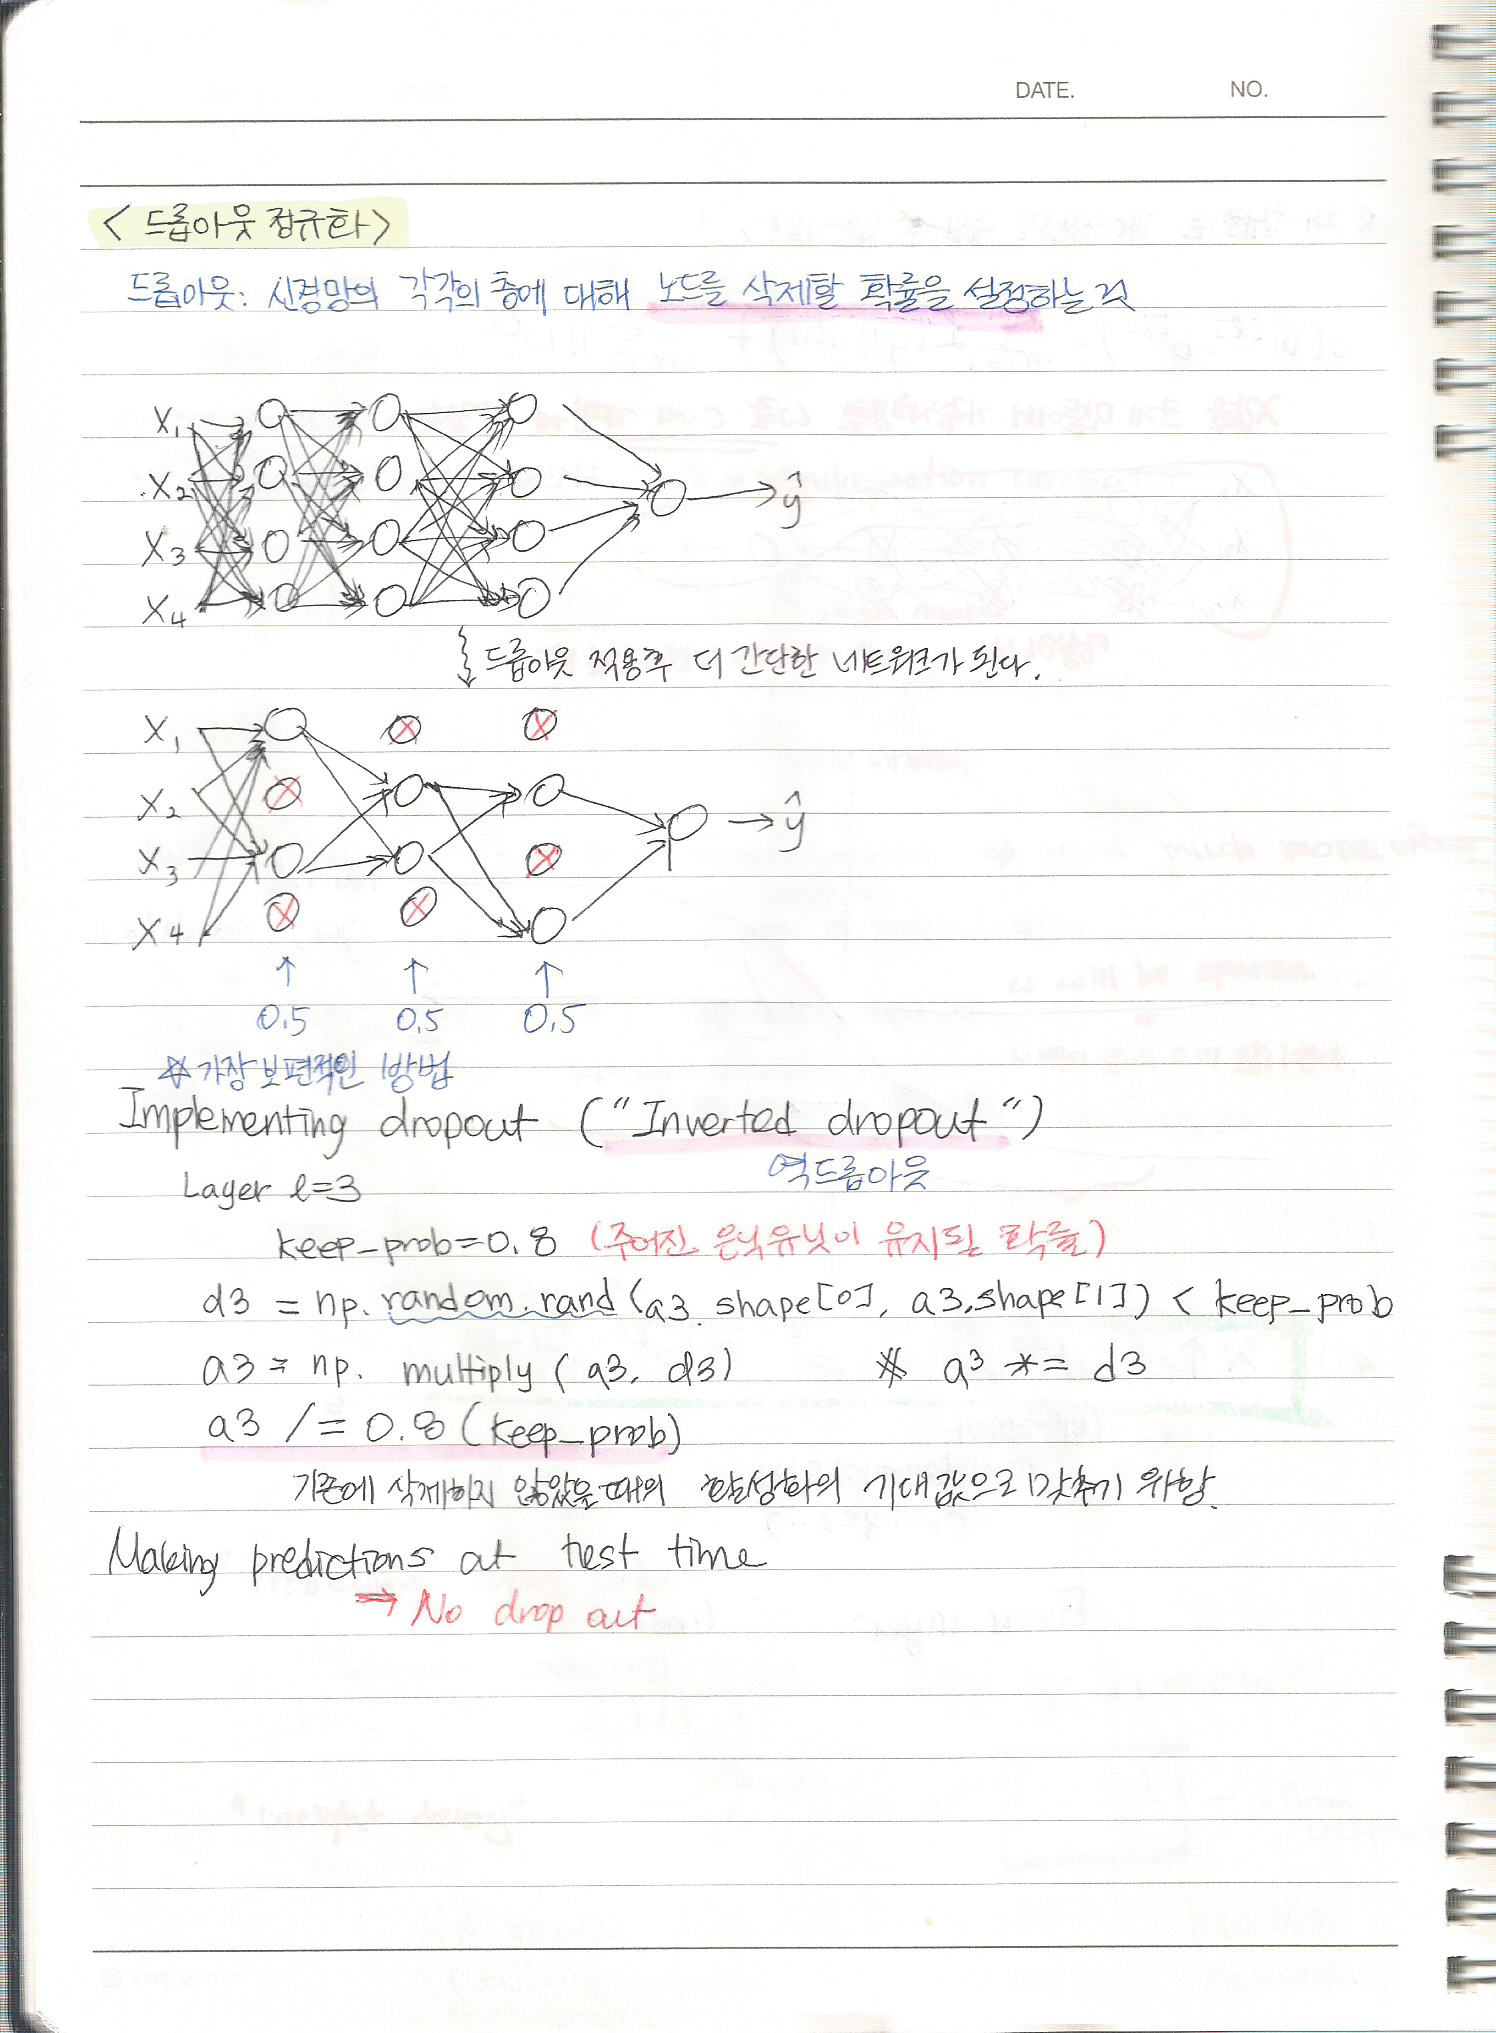 DATE. NO.
< 드롭아웃 정규화 >
드롭아웃: 신경망의 각각의 층에 대해 노드를 삭제할 확률을 설정하는 것
X₁
X₂
ŷ
X₃
X₄
드롭아웃 적용후 더 간단한 네트워크가 된다.
X₁
X₂
ŷ
X₃
X₄
↑ ↑ ↑
0.5 0.5 0.5
☆ 가장 보편적인 방법
Implementing dropout ("Inverted dropout")
역드롭아웃
Layer l=3
keep_prob=0.8 (주어진 은닉유닛이 유지될 확률)
d3 = np. random.rand (a3. shape[0], a3.shape[1]) < keep_prob
a3 = np. multiply (a3, d3) # a3 *= d3
a3 /= 0.8 (keep_prob)
기존에 삭제하지 않았을 때의 활성화의 기대값으로 맞추기 위함.
Making predictions at test time
→ No drop out